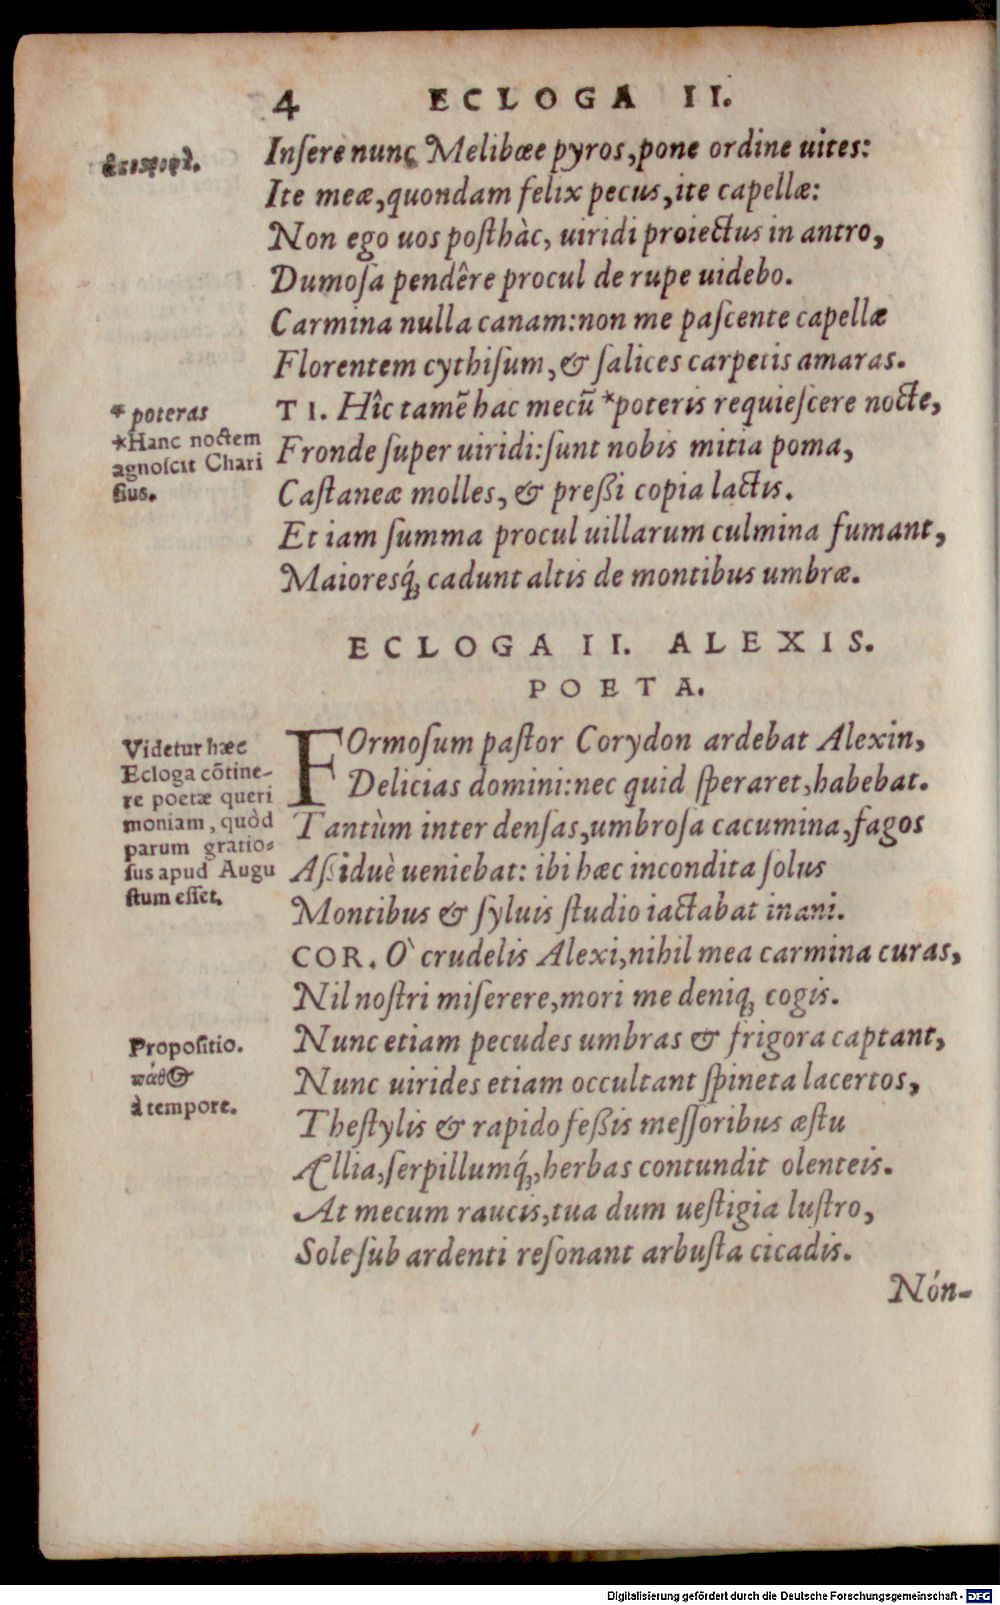 4 ECLOGA II.
Inſere nunc Melibœe pyros, pone ordine uites:
Ite meæ, quondam felix pecus, ite capellæ:
Non ego uos poſthàc, uiridi proiectus in antro,
Dumoſa pendêre procul de rupe uidebo.
Carmina nulla canam: non me paſcente capellæ
Florentem cythiſum, & ſalices carpetis amaras.
* poteras
*Hanc noctem
agnoſcit Chari
ſius.
TI. Hîc tamẽ hac mecũ *poteris requieſcere nocte,
Fronde ſuper uiridi: ſunt nobis mitia poma,
Caſtaneæ molles, & preßi copia lactis.
Et iam ſumma procul uillarum culmina fumant,
Maioresq́; cadunt altis de montibus umbræ.
ECLOGA II. ALEXIS.
POETA.
Videtur hæc
Ecloga cõtine-
re poetæ queri
moniam, quòd
parum gratio-
ſus apud Augu
ſtum eſſet.
FOrmoſum paſtor Corydon ardebat Alexin,
Delicias domini: nec quid ſperaret, habebat.
Tantùm inter denſas, umbroſa cacumina, fagos
Aßiduè ueniebat: ibi hæc incondita ſolus
Montibus & ſyluis ſtudio iactabat inani.
COR. Ò crudelis Alexi, nihil mea carmina curas,
Nil noſtri miſerere, mori me deniq; cogis.
Propoſitio.
πάθος
à tempore.
Nunc etiam pecudes umbras & frigora captant,
Nunc uirides etiam occultant ſpineta lacertos,
Theſtylis & rapido feßis meſſoribus æſtu
Ællia, ſerpillumq́;, herbas contundit olenteis.
At mecum raucis, tua dum ueſtigia luſtro,
Sole ſub ardenti reſonant arbuſta cicadis.
Nón-
Digitalisierung gefördert durch die Deutsche Forschungsgemeinschaft - DFG